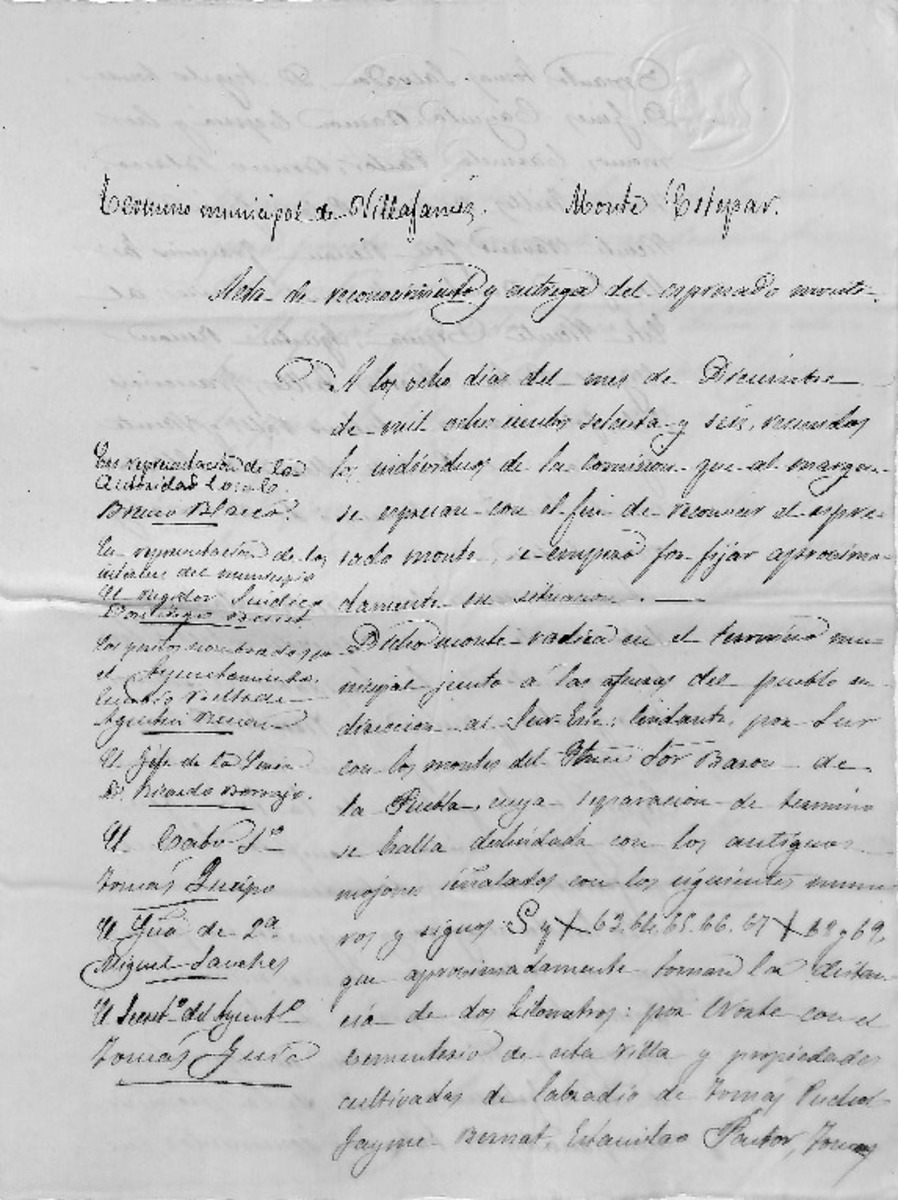 Termino municipal de Villafamés. Monte Estepar.
Acta de reconocimiento y entrega del espresado monte.
A los ocho dias del mes de Diciembre
de mil ocho cientos setenta y seis, reunidos
los individuos de la comision que al margen
se espresan con el fin de reconocer el espre-
sado monte, se empezó por fijar aproxima-
damente su situacion. —
Dicho monte radica en el termino mu-
nicipal junto á las afueras del pueblo en
direccion al Sur-Este: lindante por Sur
con los montes del Sor Baron de
la Puebla, cuya separacion de termino
se halla deslindada con los antiguos
mojones señalados con los siguientes nume-
ros y signos: S y + 63. 64. 65. 66. 67 + 68 y 69,
que aproximadamente toman la distan-
cia de dos kilometros: por Norte con el
cementerio de esta Villa y propiedades
cultivadas de labradio de Tomás
Jayme Bernat, Estanislao Pastor, Tomas
En representacion de la
Autoridad local
Bruno Blasco.
En representacion de los
del municipio
El regidor Sindico
Bernat
Los peritos nombrados por
el Ayuntamiento.
Agustin
El Gefe de la
Dn. Ricardo Bornajo.
El Cabo 1º
Tomás Queipo
El Gua de 2ª
Miguel Sanchez
El Secretº del Ayuntº
Tomás